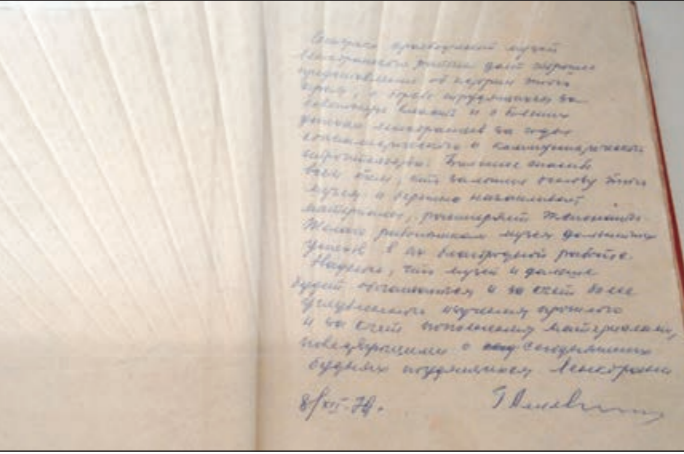 Ленкоранского района дает хорошее
представление об истории этого
края, о борьбе трудящихся за
советскую власть и о боевых
успехах ленкоранцев за годы
социалистического и коммунистического
строительства. Большое спасибо
всем тем, кто заложил основу этого
музея и бережно накапливает
материалы, расширяет экспонаты.
Желаю работникам музея дальнейших
успехов в их благородной работе.
Надеюсь, что музей и дальше
будет обогащаться и за счет более
углубленного изучения прошлого
и за счет пополнения материалами,
повествующими о сегодняшних
буднях трудящихся Ленкорани
8/XII-70.